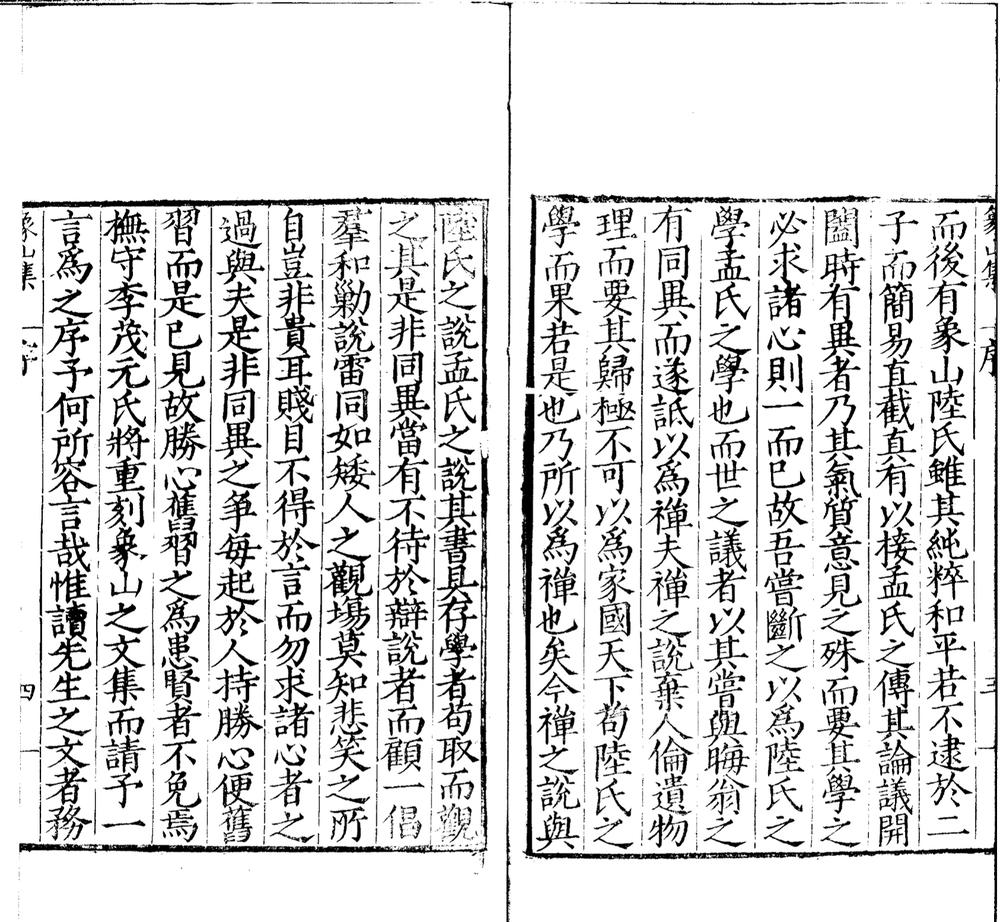 象山集 序 三
而後有象山陸氏雖其純粹和平若不逮於二
子而簡易直截真有以接孟氏之傳其論議開
闔時有異者乃其氣質意見之殊而要其學之
必求諸心則一而已故吾嘗斷之以為陸氏之
學孟氏之學也而世之議者以其嘗與晦翁之
有同異而遂詆以為禪夫禪之說棄人倫遺物
理而要其歸極不可以為家國天下苟陸氏之
學而果若是也乃所以為禪也矣今禪之說與
陸氏之說孟氏之說其書具存學者苟取而觀
之其是非同異當有不待於辯說者而顧一倡
羣和勦說雷同如矮人之觀場莫知悲笑之所
自豈非貴耳賤目不得於言而勿求諸心者之
過與夫是非同異之爭每起於人持勝心便舊
習而是已見故勝心舊習之為患賢者不免焉
撫守李茂元氏將重刻象山之文集而請予一
言為之序予何所容言哉惟讀先生之文者務
象山集 序 四